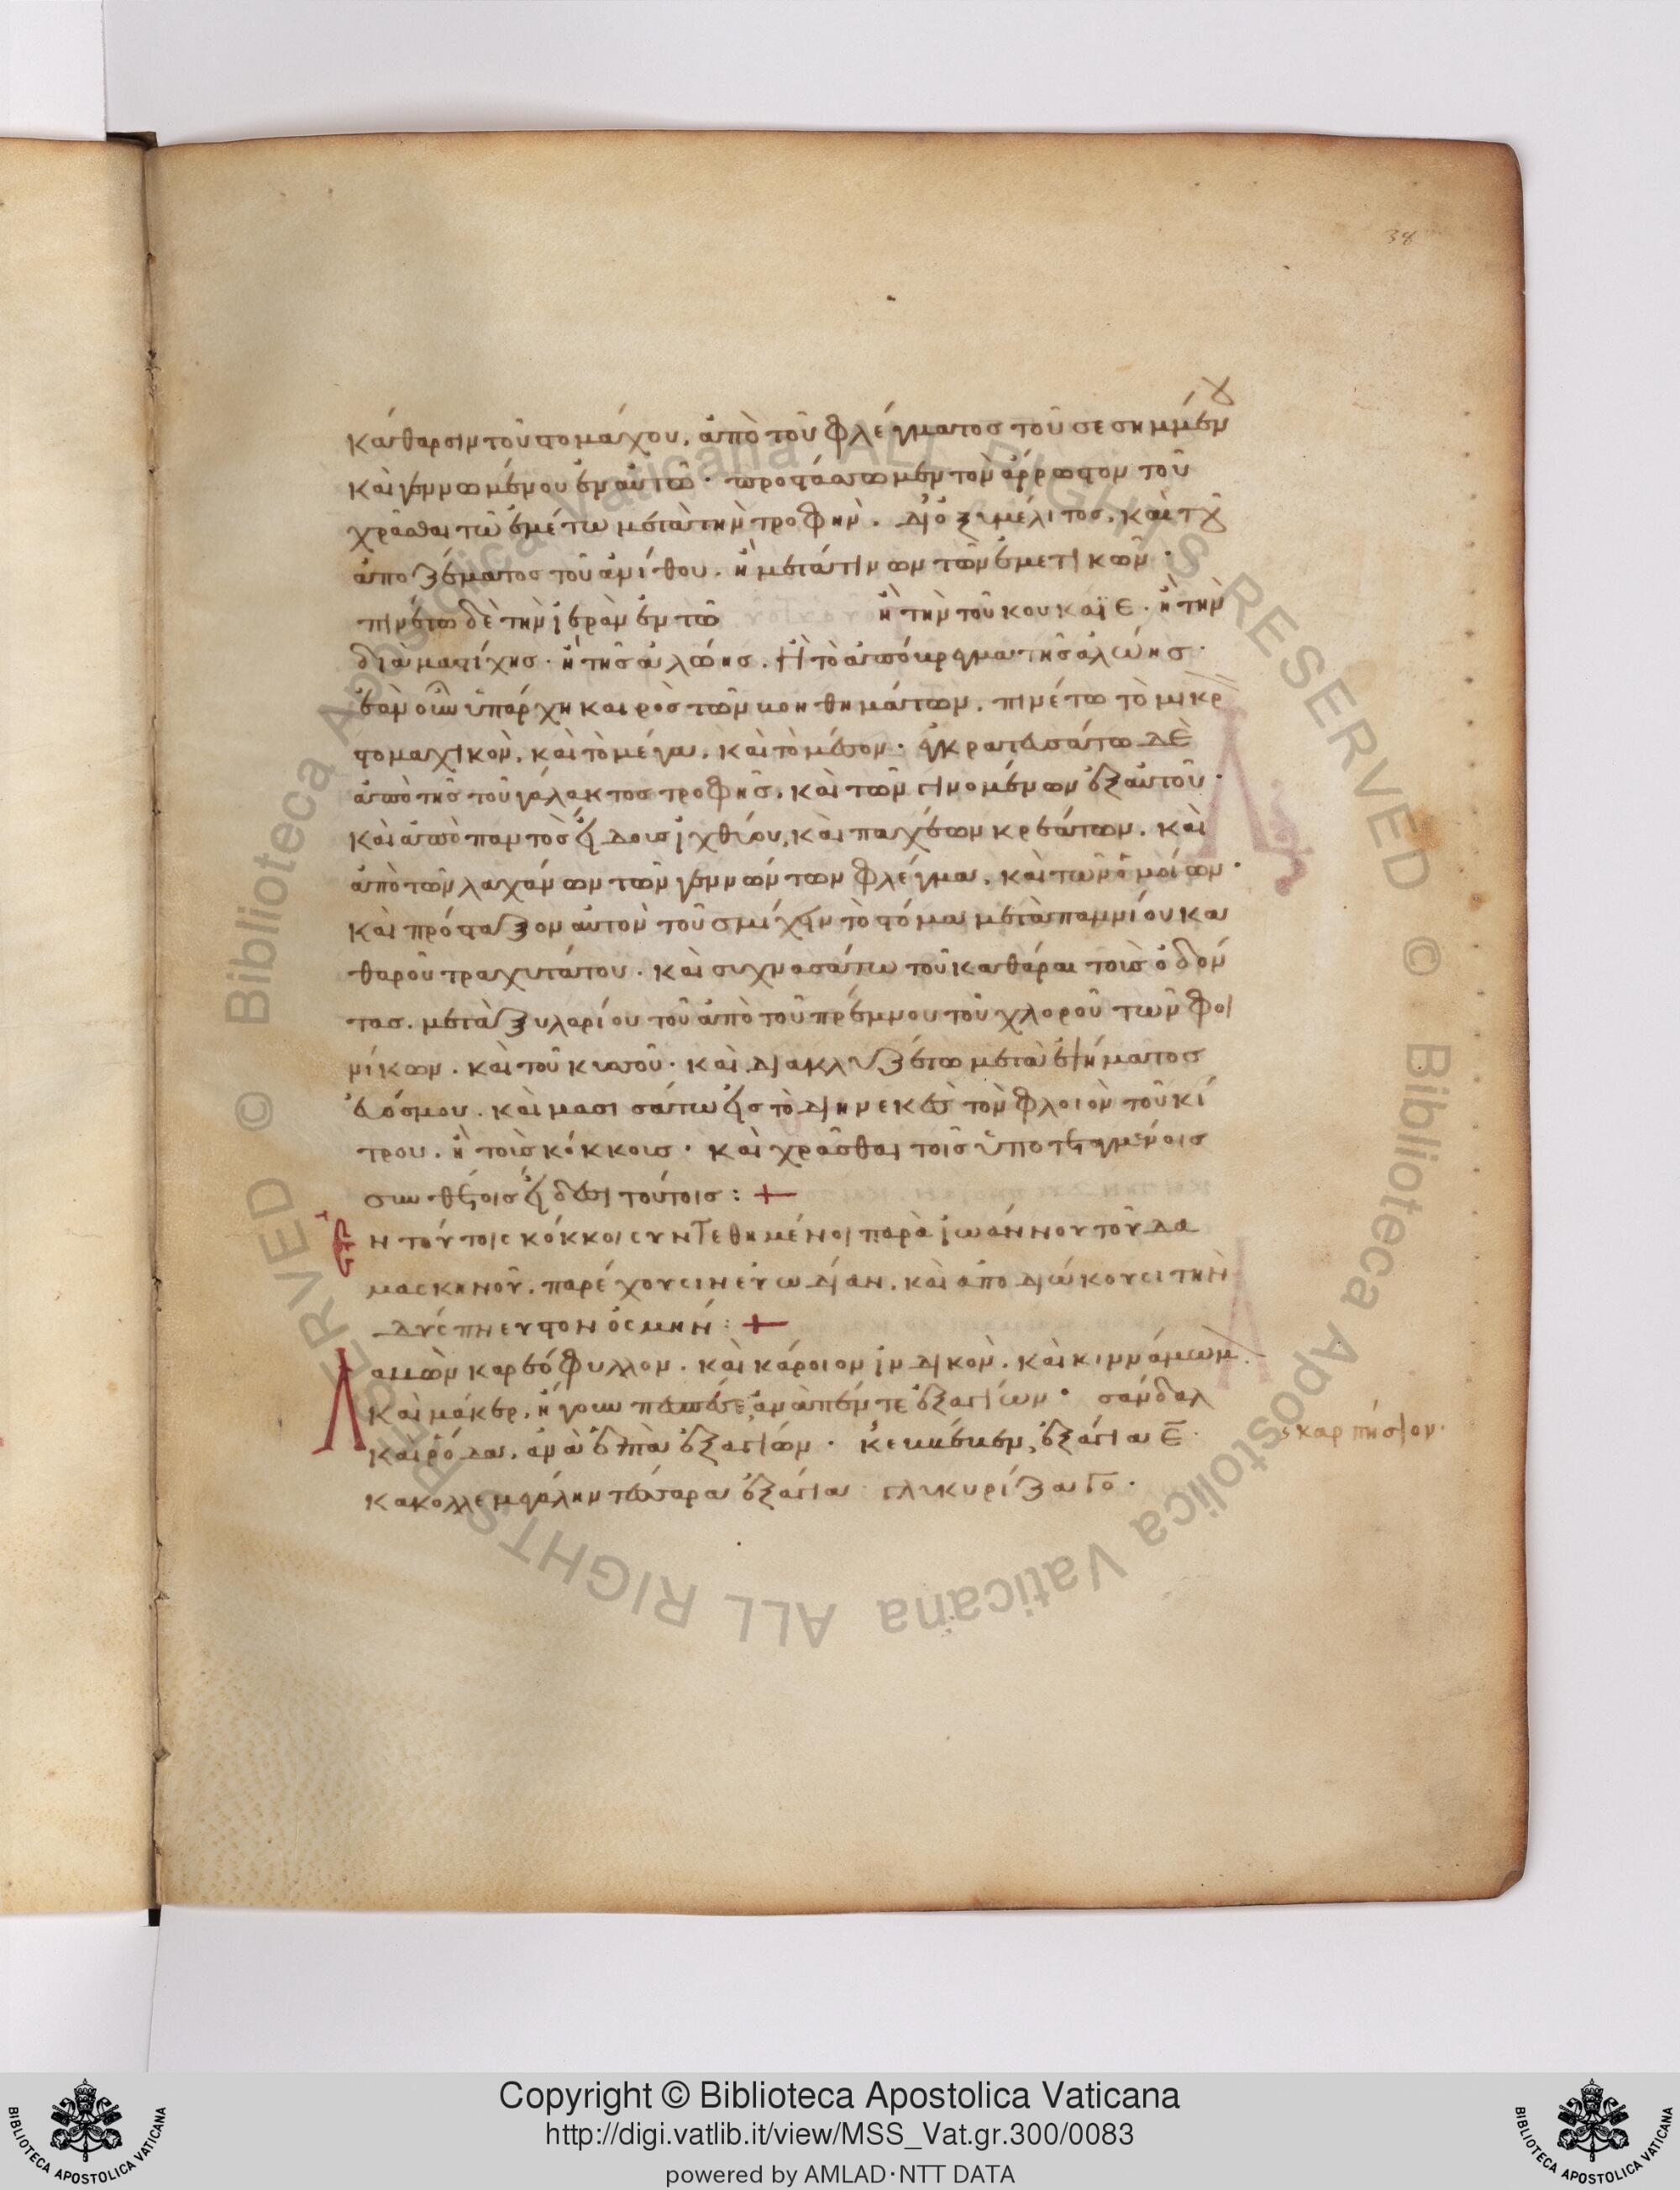 38
κάθαρσιν τοῦ στομάχου, ἀπὸ τοῦ φλέγματος τοῦ σεσημμέν
καὶ γεννωμένου ἐν αὐτῶ · προστάσσωμεν τὸν ἄρρωστον τοῦ
χρᾶσθαι τῶ ἐμέτω μετὰ τὴν τροφὴν. δι' ὀξυμέλιτος, καὶ τοῦ
ἀποζέματος τοῦ ἀνίθου. ἢ μετά τινων τῶν ἐμετικῶν ·
πινέτω δὲ τὴν ἱερὰν ἐν τῶ ἢ τὴν τοῦ κουκαΐε · ἢ τὴν
διὰ μαστίχης · ἢ τῆς ἀλώης. ἢ τὸ ἀπόκρεγμα τῆς ἀλώης ·
ἐὰν οὖν ὑπάρχη καιρὸς τῶν κονθημάτων. πινέτω τὸ μικρ
στομαχικὸν, καὶ τὸ μέγα, καὶ τὸ μέσον · ἐγκρατευσάτω δὲ
ἀπὸ τῆς τοῦ γάλακτος τροφῆς, καὶ τῶν γινομένων ἐξ αὐτοῦ ·
καὶ ἀπὸ παντὸς εἴδους ἰχθύου, καὶ παχέων κρεάτων. καὶ
ἀπὸ τῶν λαχάνων τῶν γεννών των φλέγμα, καὶ τῶν ὁμοίων ·
καὶ πρόσταξον αὐτὸν τοῦ σμίχειν τὸ στόμα μετὰ παννίου κα
θαροῦ τραχυτάτου · καὶ συχνασάτω τοῦ καθάραι τοὺς ὀδόν
τας. μετὰ ξυλαρίου τοῦ ἀπὸ τοῦ πρέμνου τοῦ χλοροῦ τῶν φοι
νίκων · καὶ τοῦ κισσοῦ · καὶ διακλυζέτω μετὰ ἑψήματος
εὐόσμου. καὶ μασισάτω εἰς τὸ διηνεκὲς τὸν φλοιὸν τοῦ κί
τρου. ἢ τοὺς κόκκους · καὶ χρᾶσθαι τοῖς ὑποτεταγμένοις
συνθέτοις εἴδεσι τούτοις : +
Ἐν τούτοις κόκκοι συντεθημένοι παρὰ ἰωάννου τοῦ δα
μασκηνοῦ. παρέχουσιν εὐωδίαν. καὶ ἀποδιώκουσι τὴν
δύσπνευστον ὀσμήν : +
Λαμὼν καρεόφυλλον. καὶ κάροιον ἰνδικὸν. καὶ κιννάμωμ
καὶ μάκερ, ἤγουν ἀνὰ πέντε ἐξαγίων · σάνδαλ
καὶ ῥόδα. ἀνὰ ἑπτὰ ἐξαγίων · κεκκέκεν, ἐξάγια ε ·
κακολλε μεγάλην τέσσαρα ἐξάγια γλυκυρίζα το ·
καρπήσιον ·
Copyright © Biblioteca Apostolica Vaticana
http://digi.vatlib.it/view/MSS_Vat.gr.300/0083
powered by AMLAD·NTT DATA
BIBLIOTECA APOSTOLICA VATICANA
BIBLIOTECA APOSTOLICA VATICANA
© Biblioteca Apostolica Vaticana ALL RIGHTS RESERVED © Biblioteca Apostolica Vaticana ALL RIGHTS RESERVED